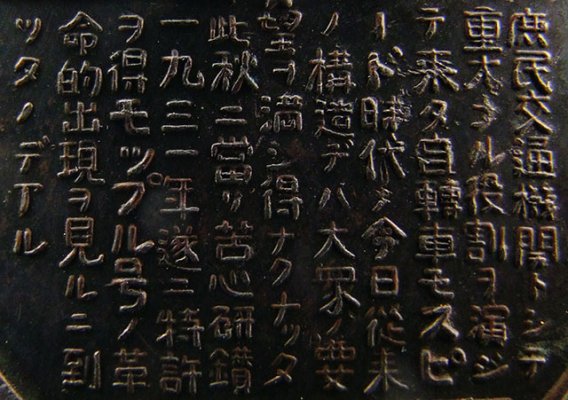 庶民交通機関トシテ
重大ナル役割ヲ演ジ
テ来タ自轉車モスピ
ード時代ノ今日從来
ノ構造デハ大衆ノ要
望ヲ満シ得ナクナッタ
此秋ニ當リ苦心研鑽
一九三一年遂ニ特許
ヲ得モップル号ノ革
命的出現ヲ見ルニ到
ッタノデアル